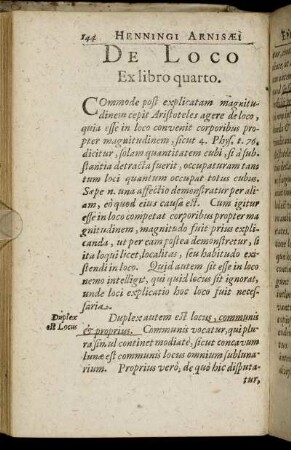 144 HENNINGI ARNISÆI
DE LOCO
Ex libro quarto.
Commode post explicatam magnitu-
dinem cepit Aristoteles agere de loco,
quia esse in loco convenit corporibus pro-
pter magnitudinem, sicut 4. Phys. t. 76,
dicitur, solam quantitatem cubi, si à sub-
stantia detracta fuerit, occupaturam tan-
tum loci quantum occupat totus cubus.
Sæpe n. una affectio demonstratur per ali-
am, eò quod eius causa est. Cum igitur
esse in loco competat corporibus propter ma-
gnitudinem, magnitudo fuit prius expli-
canda, ut per eam postea demonstretur, si
ita loqui licet, localitas, seu habitudo exi-
stendi in loco. Quid autem sit esse in loco
nemo intelligit, qui quid locus sit ignorat,
unde loci explicatio hoc loco fuit neces-
saria.
Duplex
est Locus
Duplex autem est locus, communis
& proprius. Communis vocatur, qui plu-
ra simul continet modiatè, sicut concavum
lunæ est communis locus omnium sublunа-
rium. Proprius verò, de quò hic disputa-
tur,